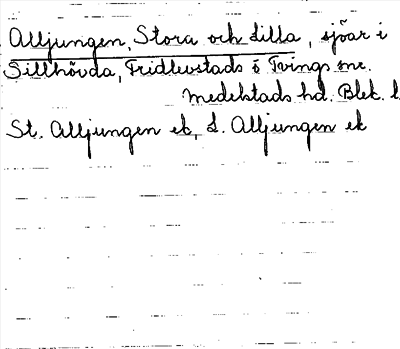 Alljungen, Stora och Lilla, sjöar i
Sillhövda, Fridlevstads o Tvings snr.
Medelstads hd. Blek. l
St. Alljungen ek, L. Alljungen ek